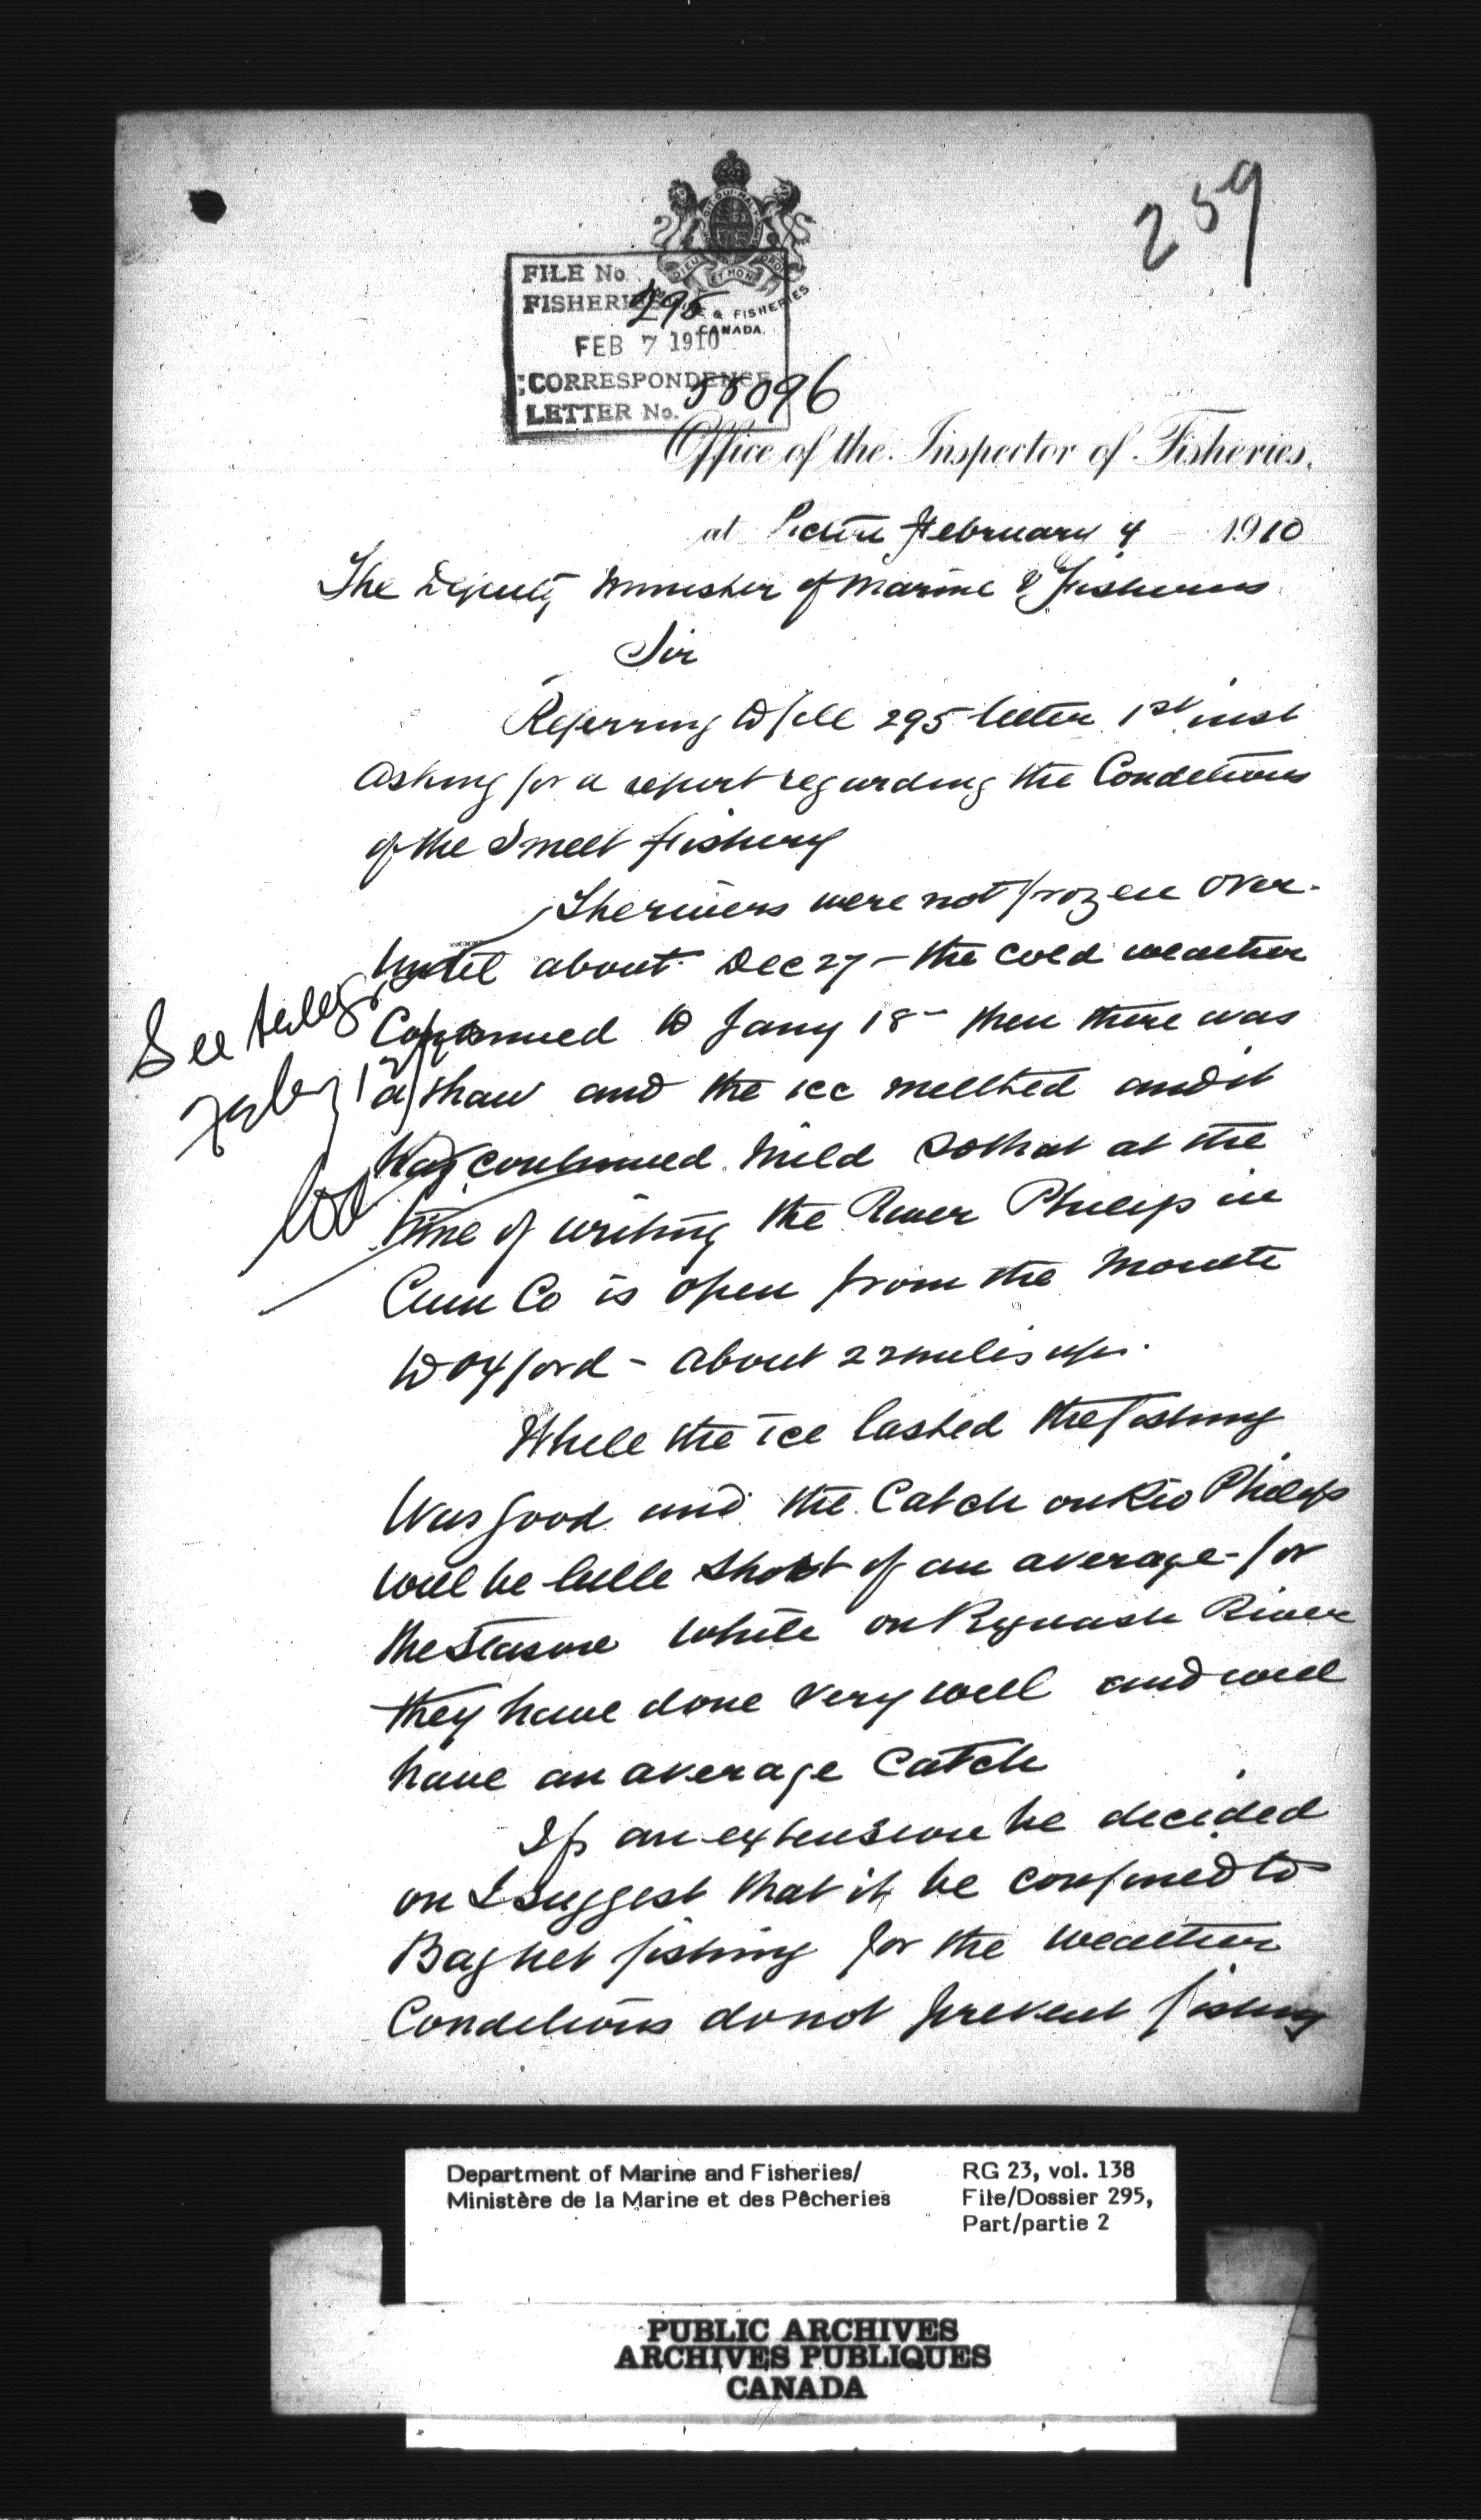 259
FILE No.
FISHERIES 295
& FISHERIES
CANADA.
FEB 7 1910
CORRESPONDENCE
LETTER No. 55096
Office of the Inspector of Fisheries.
at Pictou February 4 1910
The Deputy Minister of Marine & Fisheries
Sir
Referring to file 295 letter 1st inst
asking for a report regarding the Conditions
of the Smelt fishery
The rivers were not frozen over
until about Dec 27 – the cold weather
Continued to Jany 18 – then there was
a thaw and the ice mellted and it
has continued mild so that at the
time of writing the River Philip in
Cum Co is open from the mouth
to Oxford – about 22 miles up.
While the ice lasted the fishing
was good and the Catch on Riv Philip
will be little short of an average for
the season while on Pugwash River
they have done very well and will
have an average Catch
If an extension be decided
on I suggest that it be confined to
Bagnet fishing for the weather
Conditions do not prevent fishing
See telegr
Feby 12/10
Department of Marine and Fisheries/
Ministère de la Marine et des Pêcheries
RG 23, vol. 138
File/Dossier 295,
Part/partie 2
PUBLIC ARCHIVES
ARCHIVES PUBLIQUES
CANADA